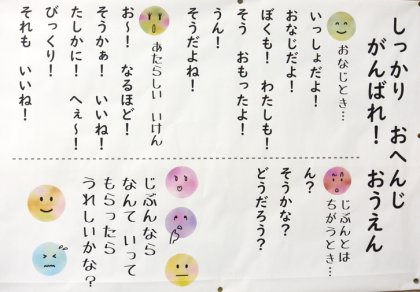 しっかり おへんじ
がんばれ! おうえん
おなじとき…
いっしょだよ!
おなじだよ!
ぼくも! わたしも!
そう おもったよ!
うん!
そうだよね!
あたらしい いけん
お〜! なるほど!
そうかぁ! いいね!
たしかに! へぇ〜!
びっくり!
それも いいね!
じぶんとは
ちがうとき…
ん?
そうかな?
どうだろう?
じぶんなら
なんて いって
もらったら
うれしいかな?